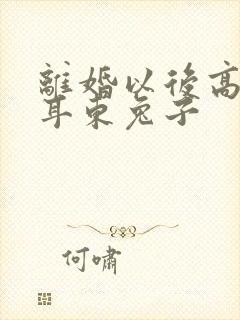 離婚以後高
耳東兔子
何嘯